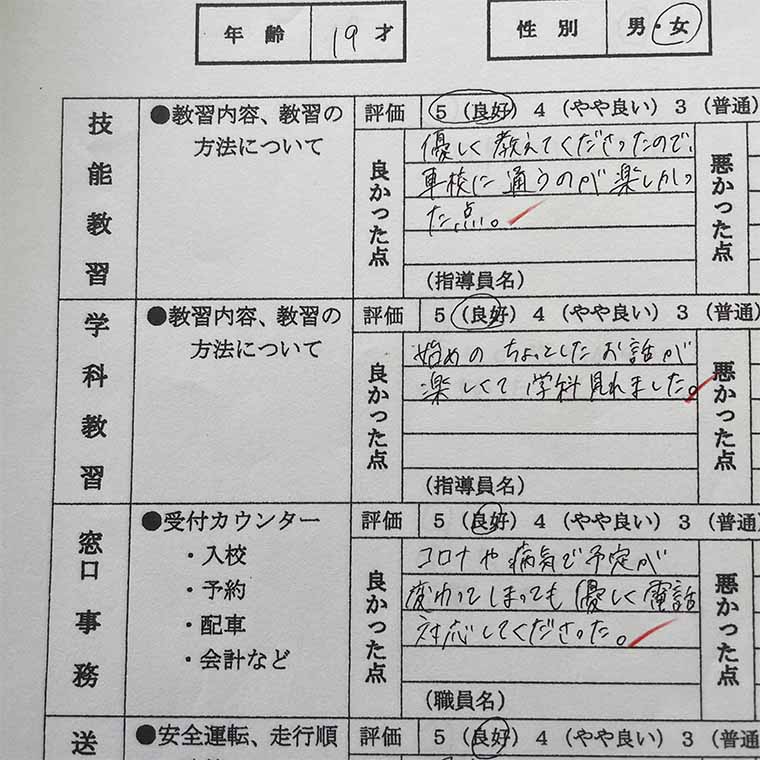 年齢 19才 性別 男・女
技能教習
●教習内容、教習の
方法について
評価 5 (良好) 4 (やや良い) 3 (普通)
良かった点
優しく教えてくださったので、
車校に通うのが楽しかっ
た点。
(指導員名)
悪かった点
学科教習
●教習内容、教習の
方法について
評価 5 (良好) 4 (やや良い) 3 (普通
良かった点
始めのちょっとしたお話が
楽しくて学科見れました。
(指導員名)
悪かった点
窓口事務
●受付カウンター
・入校
・予約
・配車
・会計など
評価 5 (良好) 4 (やや良い) 3 (普通
良かった点
コロナや病気で予定が
変わってしまっても優しく電話
対応してくださった。
(職員名)
悪かった点
送
●安全運転、走行順
評価 5 (良好) 4 (やや良い) 3 (普通